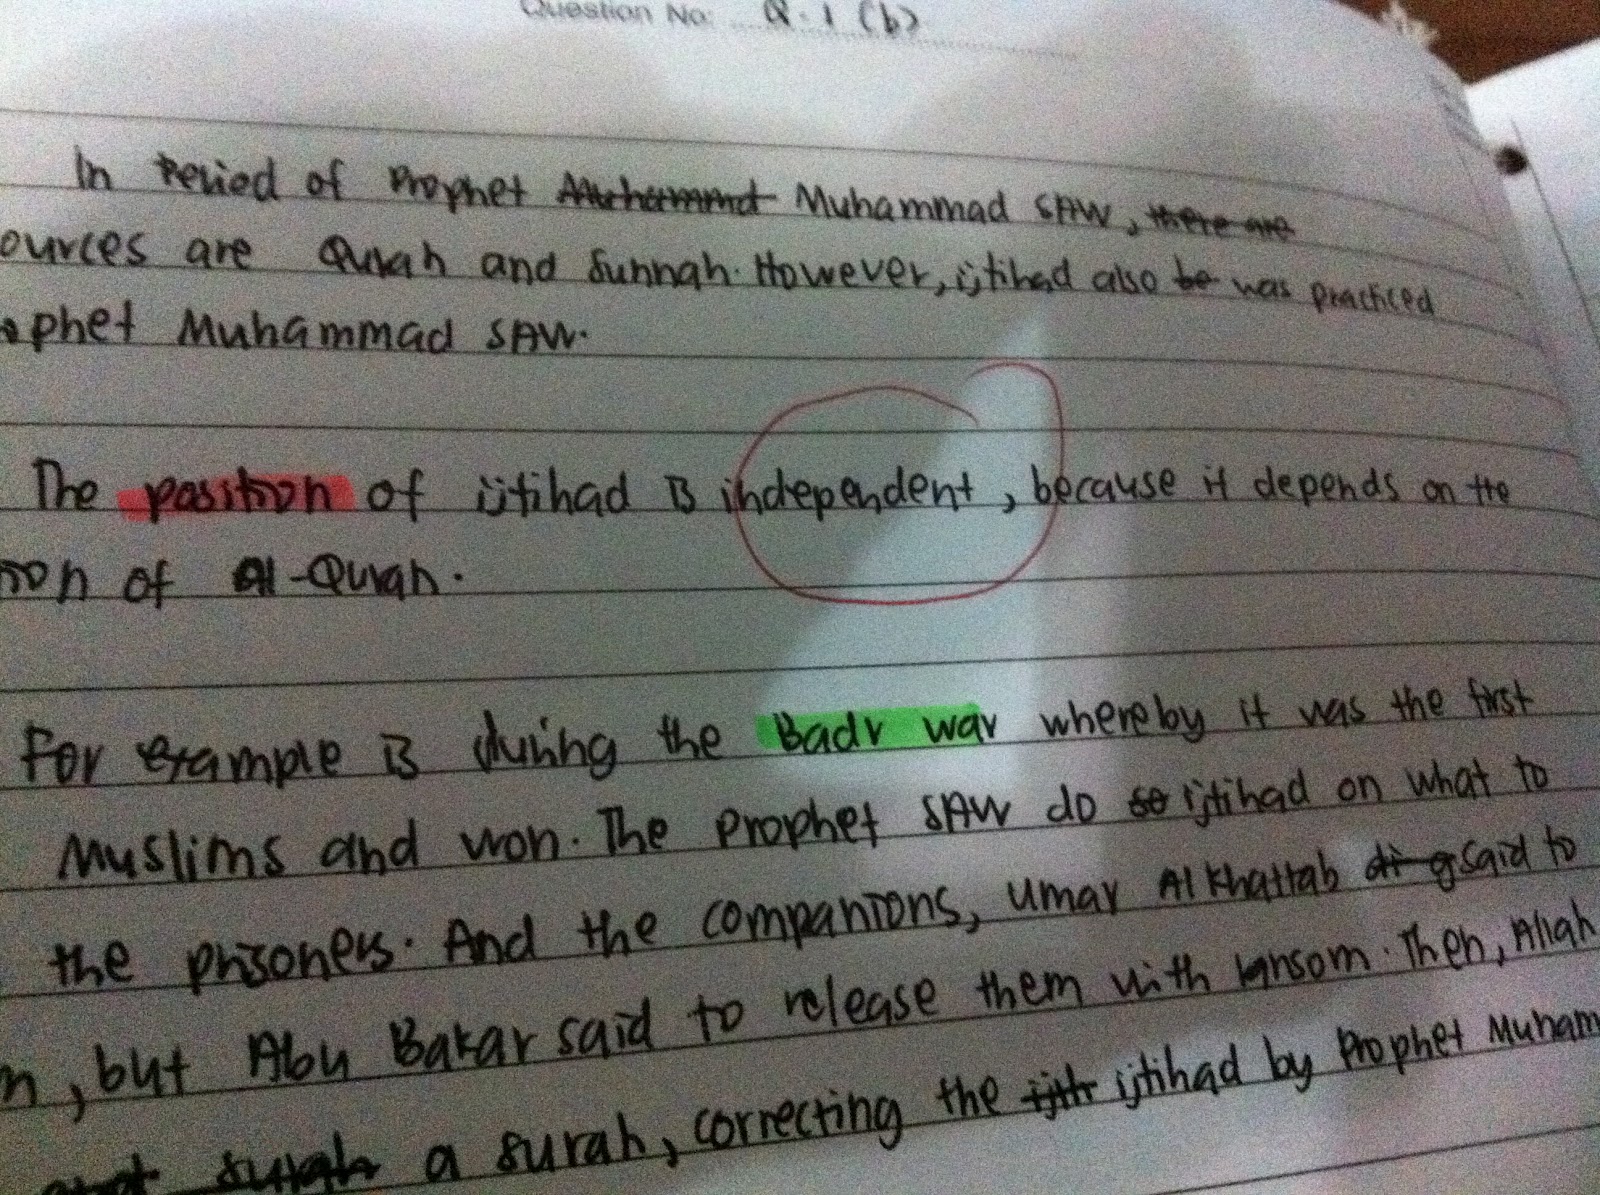 Question No: Q.1 (b)
In Period of Prophet Muhammd Muhammad SAW, there are
ources are Quran and Sunnah. However, ijtihad also be was practiced
ophet Muhammad SAW.
The position of ijtihad is independent, because it depends on the
ion of Al-Quran.
For example is during the Badr war whereby it was the first
Muslims and won. The Prophet SAW do so ijtihad on what to
the prisoners. And the companions, Umar Al Khattab said to
n, but Abu Bakar said to release them with ransom. Then, Allah
surah a surah, correcting the ijtih ijtihad by Prophet Muham